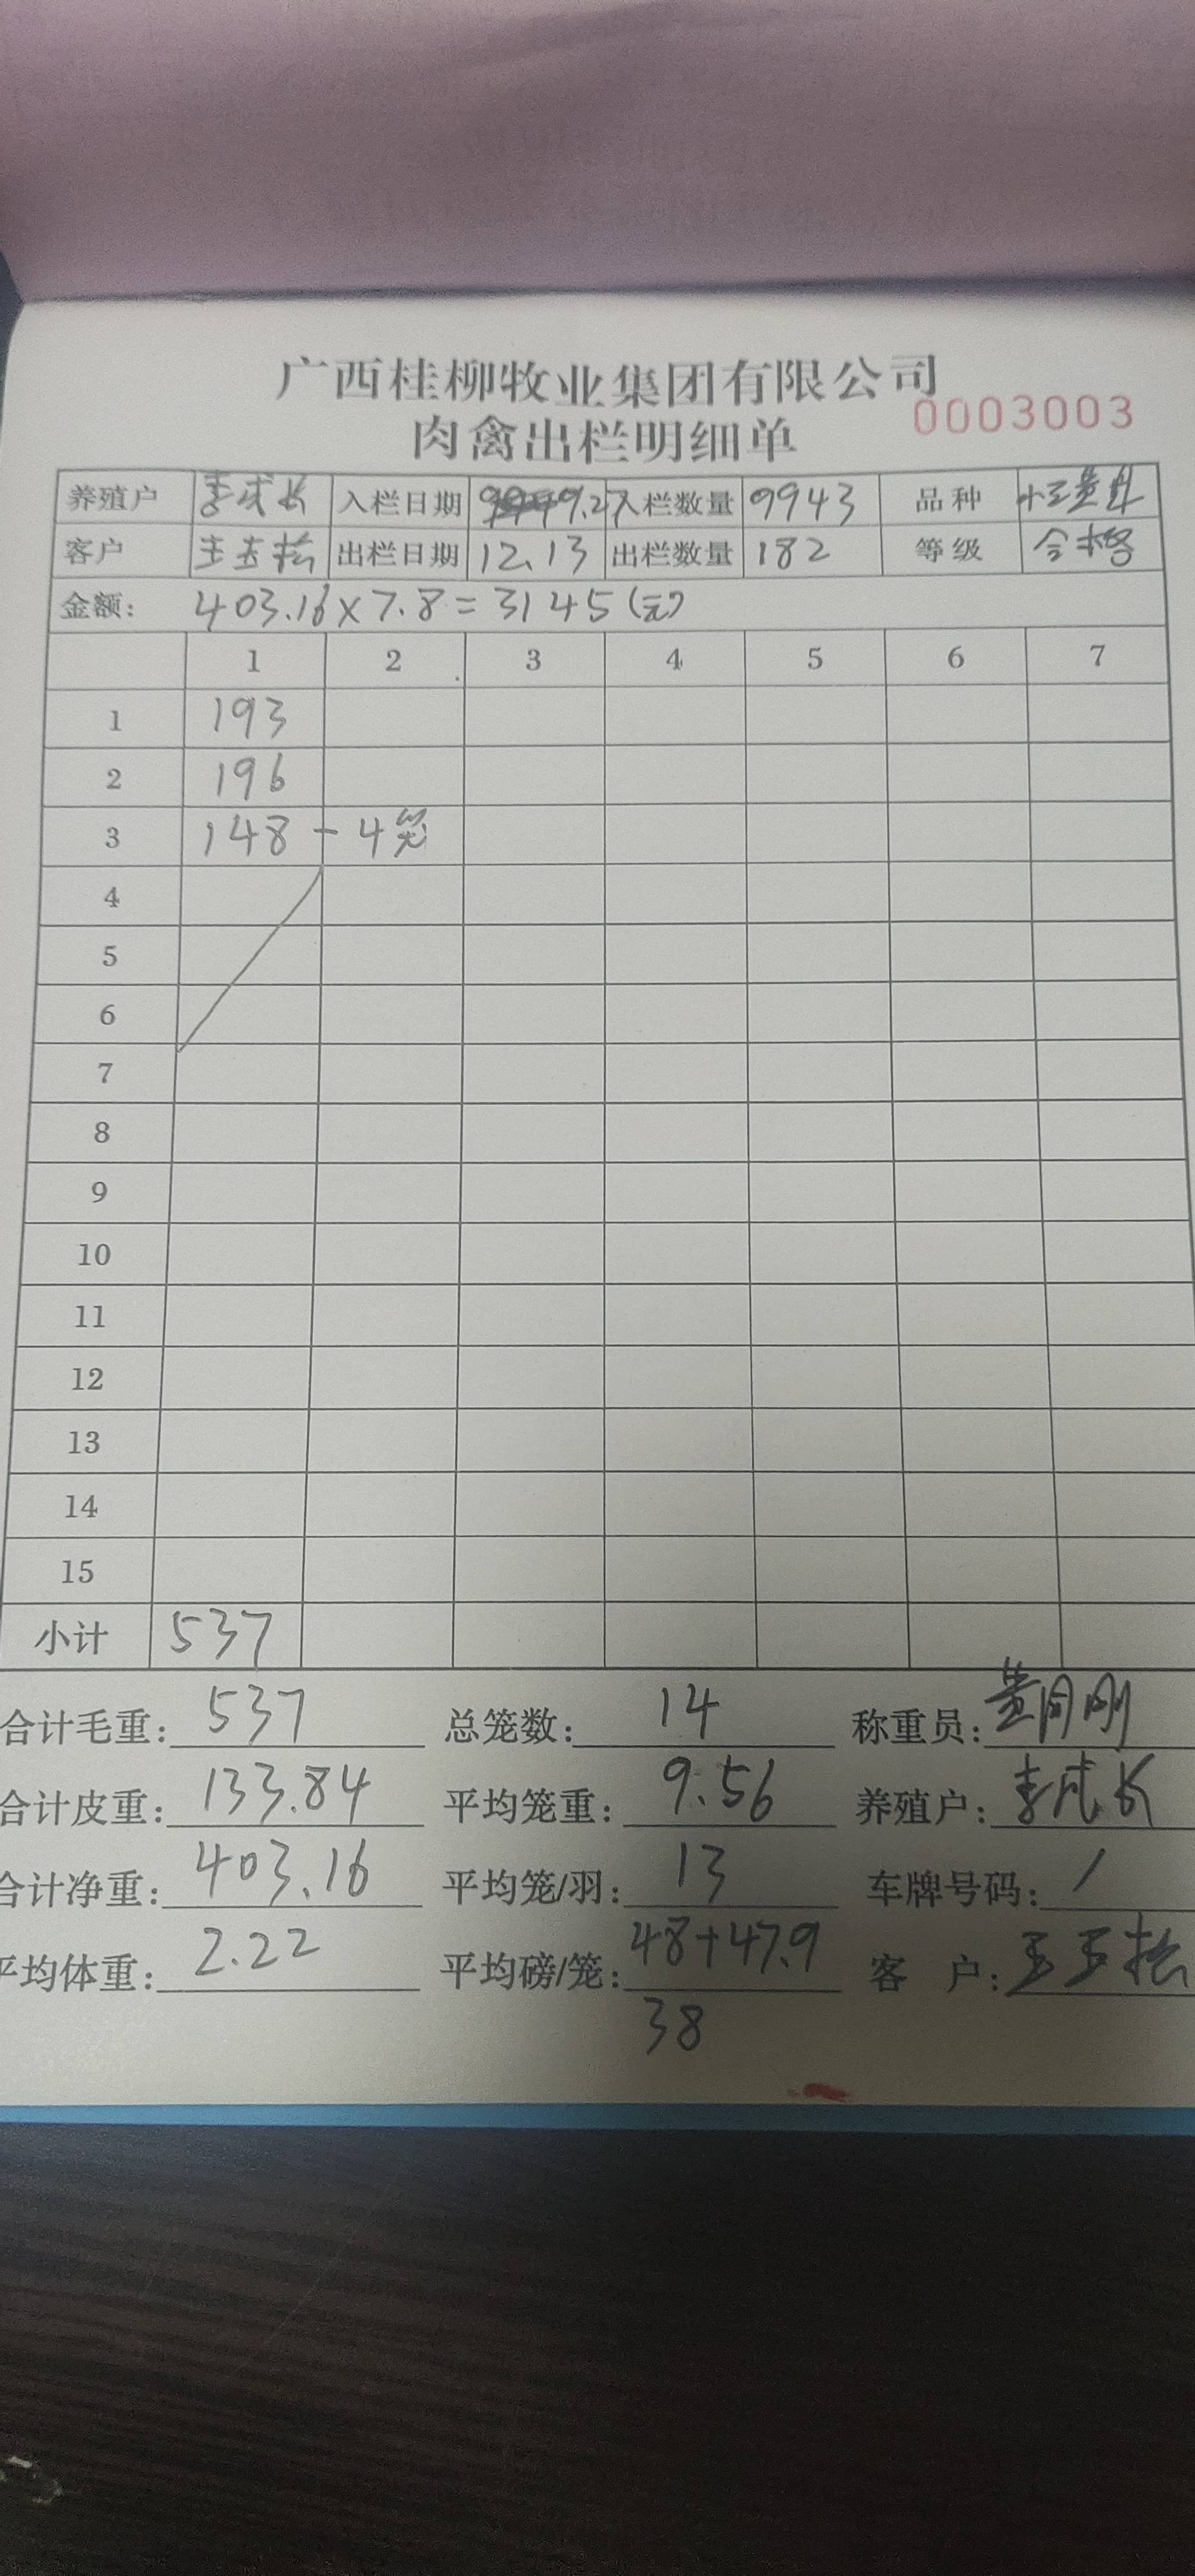 广西桂柳牧业集团有限公司
0003003
肉禽出栏明细单
养殖户 李成长 入栏日期 9.27 入栏数量 9943 品种
客户 出栏日期 12.13 出栏数量 182 等级 合格
金额: 403.16×7.8=3145(元)
1 2 3 4 5 6 7
1 193
2 196
3 148-4笼
4
5
6
7
8
9
10
11
12
13
14
15
小计 537
合计毛重: 537 总笼数: 14 称重员:
合计皮重: 133.84 平均笼重: 9.56 养殖户: 李成长
合计净重: 403.16 平均笼/羽: 13 车牌号码: /
平均体重: 2.22 平均磅/笼: 48+47.9 客 户:
38